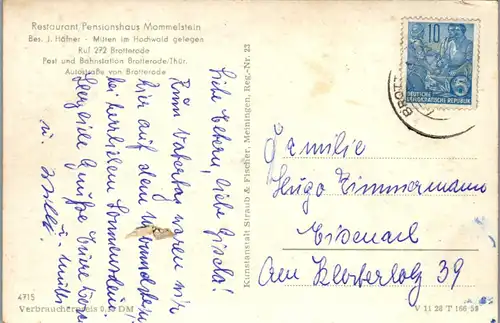 Restaurant Pensionshaus Mommelstein
Bes. J. Häfner - Mitten im Hochwald gelegen
Ruf 272 Brotterode
Post und Bahnstation Brotterode/Thür.
Autostraße von Brotterode
Liebe Eltern, liebe Gisela!
Zum Vatertag waren wir
hier auf dem Mommelstein
bei herrlichem Sonnenschein!
Herzliche Grüße Eure
u.
4715
Verbraucherpreis 0,20 DM
Kunstanstalt Straub & Fischer, Meiningen, Reg.-Nr. 23
10
5
DEUTSCHE
DEMOKRATISCHE REPUBLIK
Familie
Hugo Zimmermann
Eisenach
Am Klosterholz 39
V 11 28 T 166 58